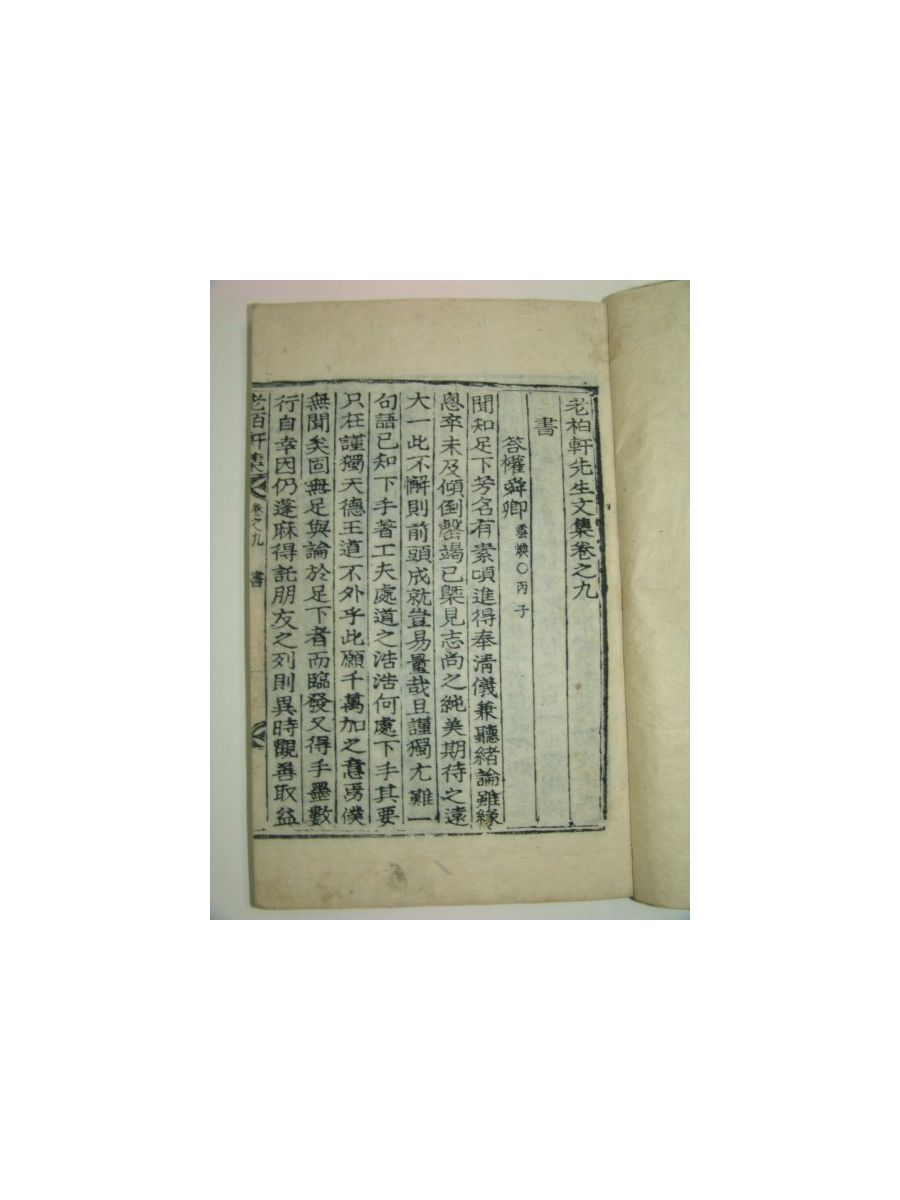 老柏軒先生文集卷之九
書
答權舜卿 雲煥○丙子
聞知足下芳名有素頃進得奉淸儀兼聽緖論雖緣
悤卒未及傾倒罄竭已槩見志尚之純美期待之遠
大一此不懈則前頭成就豈易量哉且謹獨尤難一
句語已知下手著工夫處道之浩浩何處下手其要
只在謹獨天德王道不外乎此願千萬加之意焉僕
無聞矣固無足與論於足下者而臨發又得手墨數
行自幸因仍蓬麻得託朋友之列則異時觀善取益
老柏軒集 卷之九 書